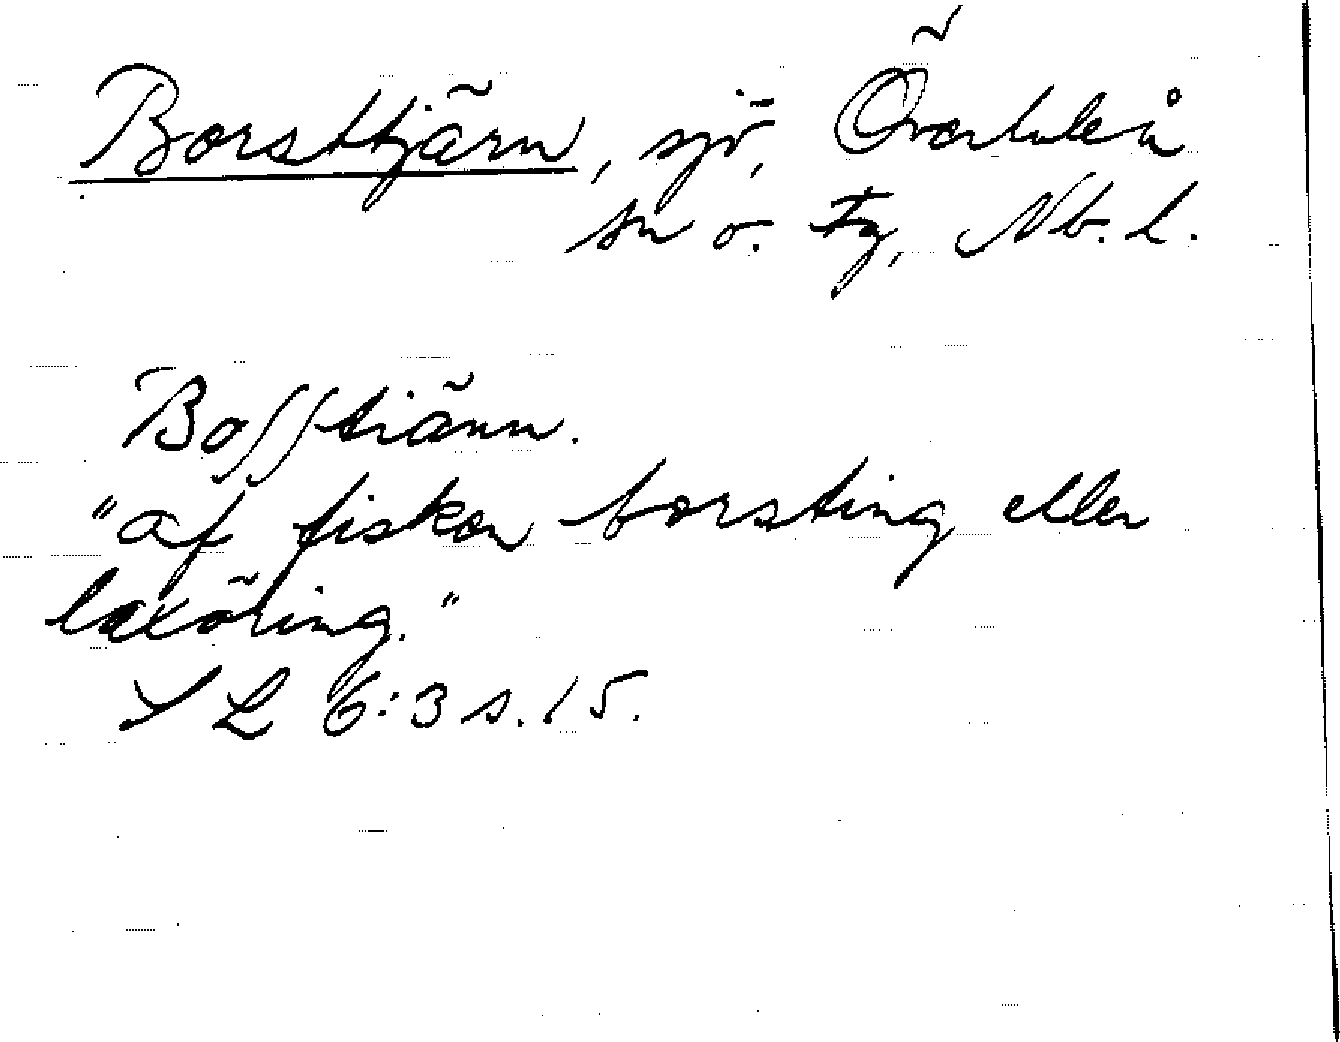 Borsttjärn, sjö, Överluleå
sn o. tg, Nb. l.
Bosstiänn.
"af fisken borsting eller
laxöring."
S L 6:3 s. 15.